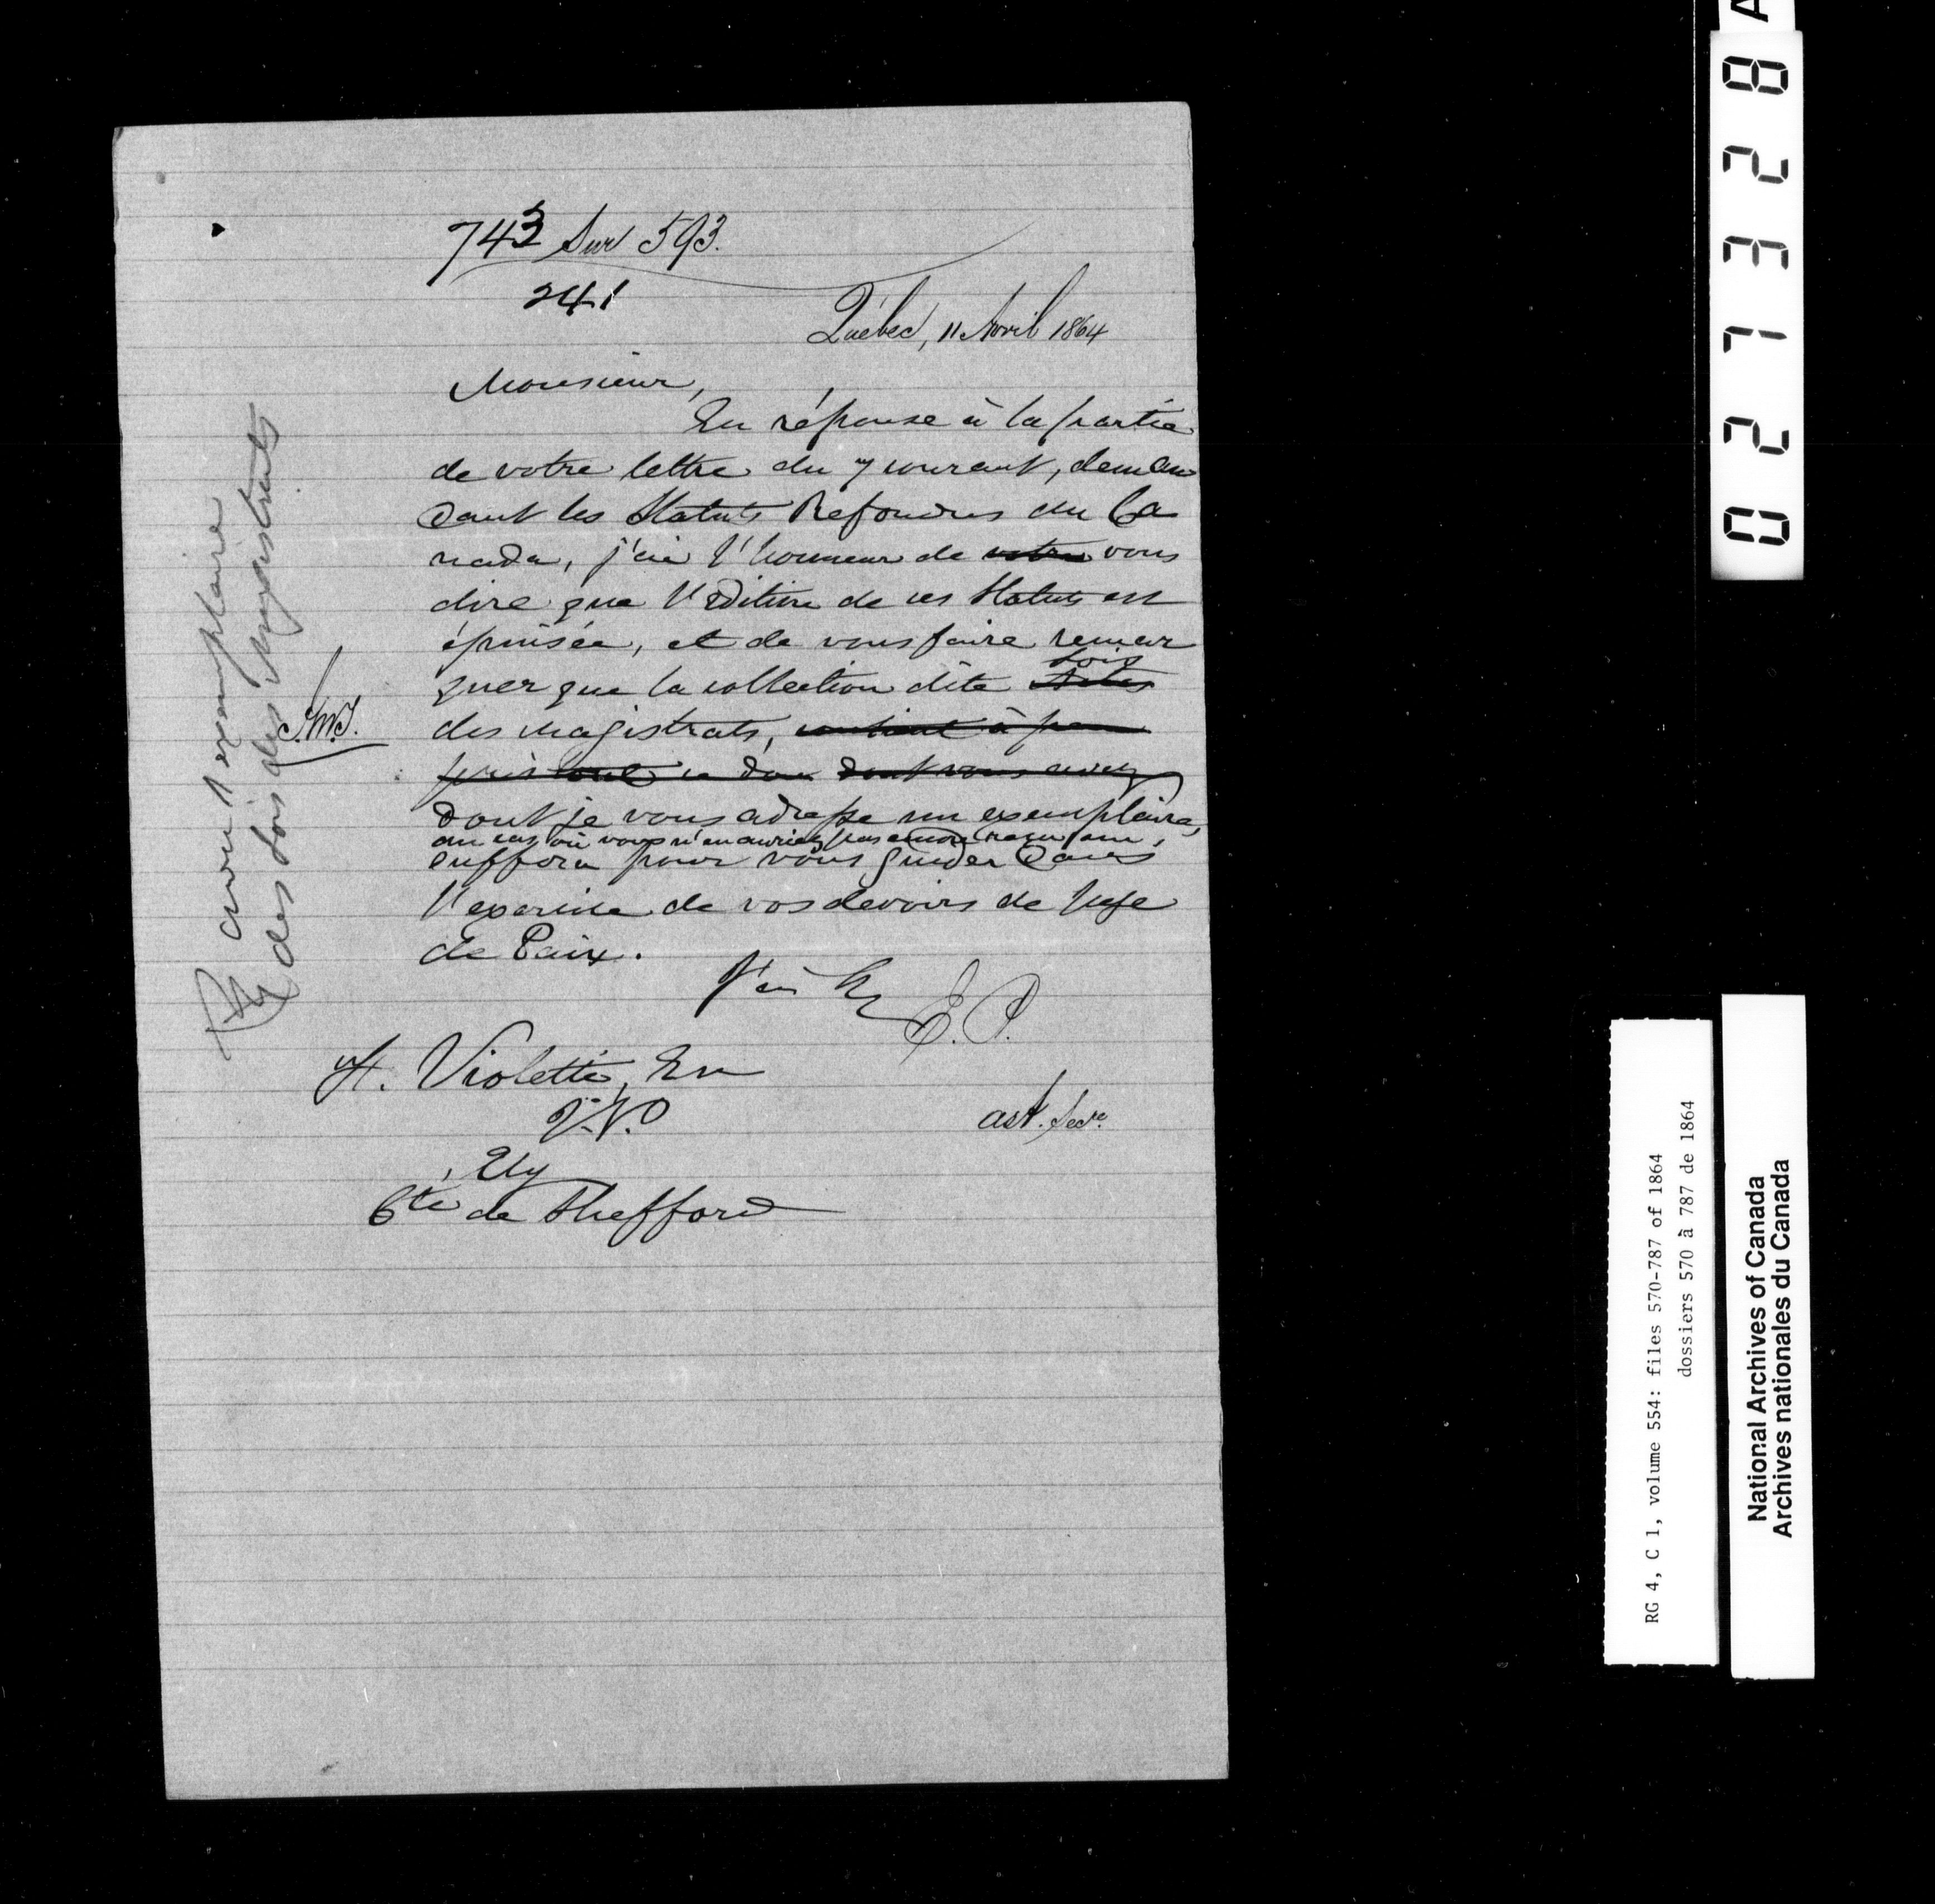 743 Sur 593.
241
Québec, 11 Avril 1864
Monsieur,
En réponse à la partie
de votre lettre du 7 courant, deman
dant les Statuts Refondus du Ca
nada, j'ai l'honneur de votre vous
dire que l'Edition de ces Statuts est
épuisée, et de vous faire remar
quer que la collection dite Actes Lois
des Magistrats, contient à peu
près tout ce dont vous avez
dont je vous adresse un exemplaire,
au cas où vous n'en auriez pas encore reçu un,
suffira pour vous guider dans
l'exercice de vos devoirs de Juge
de Paix.
J'ai
E. P.
H. Violette, Esr
J. P.
Asst. Secre.
Ely
Cté de Shefford
J.W.T.
avec 1 exemplaire
des Lois des Magistrats
0 2 7 3 2 8
RG 4, C 1, volume 554: files 570-787 of 1864
dossiers 570 à 787 de 1864
National Archives of Canada
Archives nationales du Canada